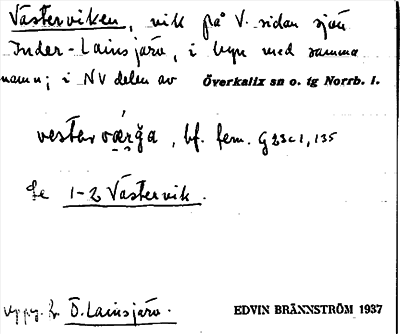 Västerviken, vik på V. sidan sjön
Inder-Lainsjärv, i byn med samma
namn; i NV delen av Överkalix sn o. tg Norrb. l.
vestərværǧa, bf. fem. G23c1,135
Se 1-2 Västervik.
uppg. 2 Ö. Lainsjärv.
EDVIN BRÄNNSTRÖM 1937